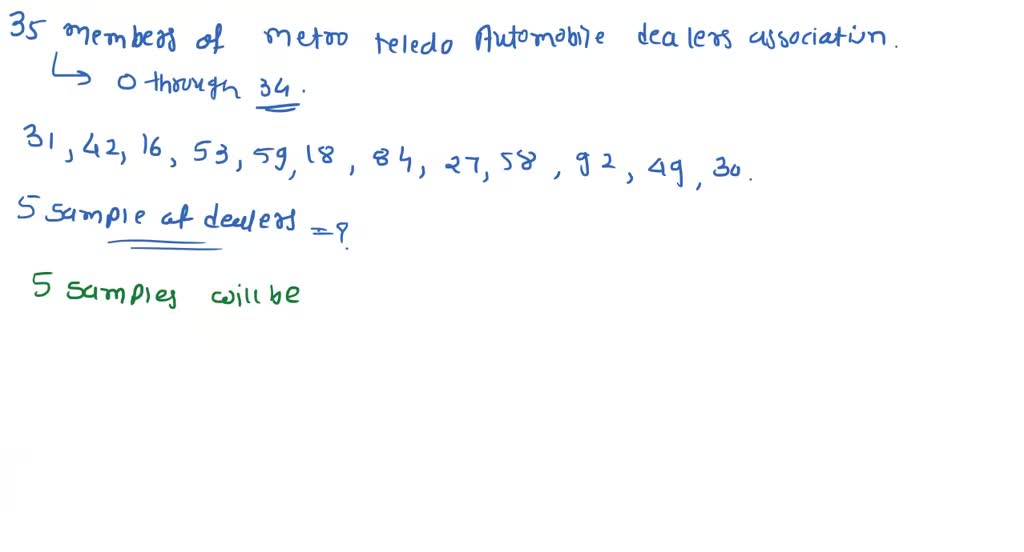 35 members of metro teledo Automobile dealers association.
↳ 0 through 34.
31, 42, 16, 53, 59, 18, 84, 27, 58, 92, 49, 30.
5 sample of dealers = ?
5 samples will be